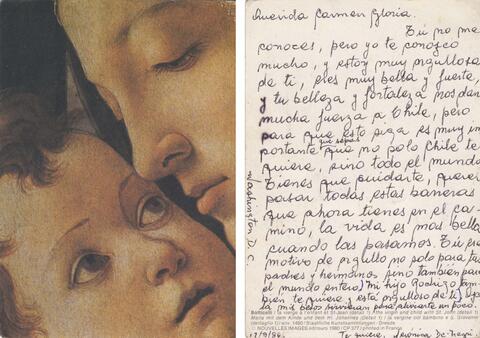 Querida Carmen Gloria.
Tú no me
conoces, pero yo te conozco
mucho, y estoy muy orgullosa
de ti, eres muy bella y fuerte,
y tu belleza y fortaleza nos dan
mucha fuerza a Chile, pero
para que esto siga es muy im
portante que sepas que no solo Chile te
quiere, sino todo el mundo
Tienes que cuidarte, querer
pasar todas estas barreras
que ahora tienes en el ca-
mino, la vida es mas bella
cuando las pasamos. Tú eres
motivo de orgullo no solo para tus
padres y hermanos sino también para
el mundo entero) Mi hijo Rodrigo tam-
bien te quiere y está orgulloso de ti)
la mis besos sirvieran para aliviarte un poco.
Botticelli / la vierge à l'enfant et St-Jean (détail 1) / the virgin and child with St. John (detail 1)
Maria mit dem Kinde und dem hl. Johannes (Detail 1) / la vergine col bambino e S. Giovanni
(dettaglio 1) / env. 1490 / Staatliche Kunstsammlungen / Dresde
© NOUVELLES IMAGES éditeurs 1980 / CP 377 / printed in France
17/9/86.
Te quiere, Verónica De-Negri
Washington D.C.